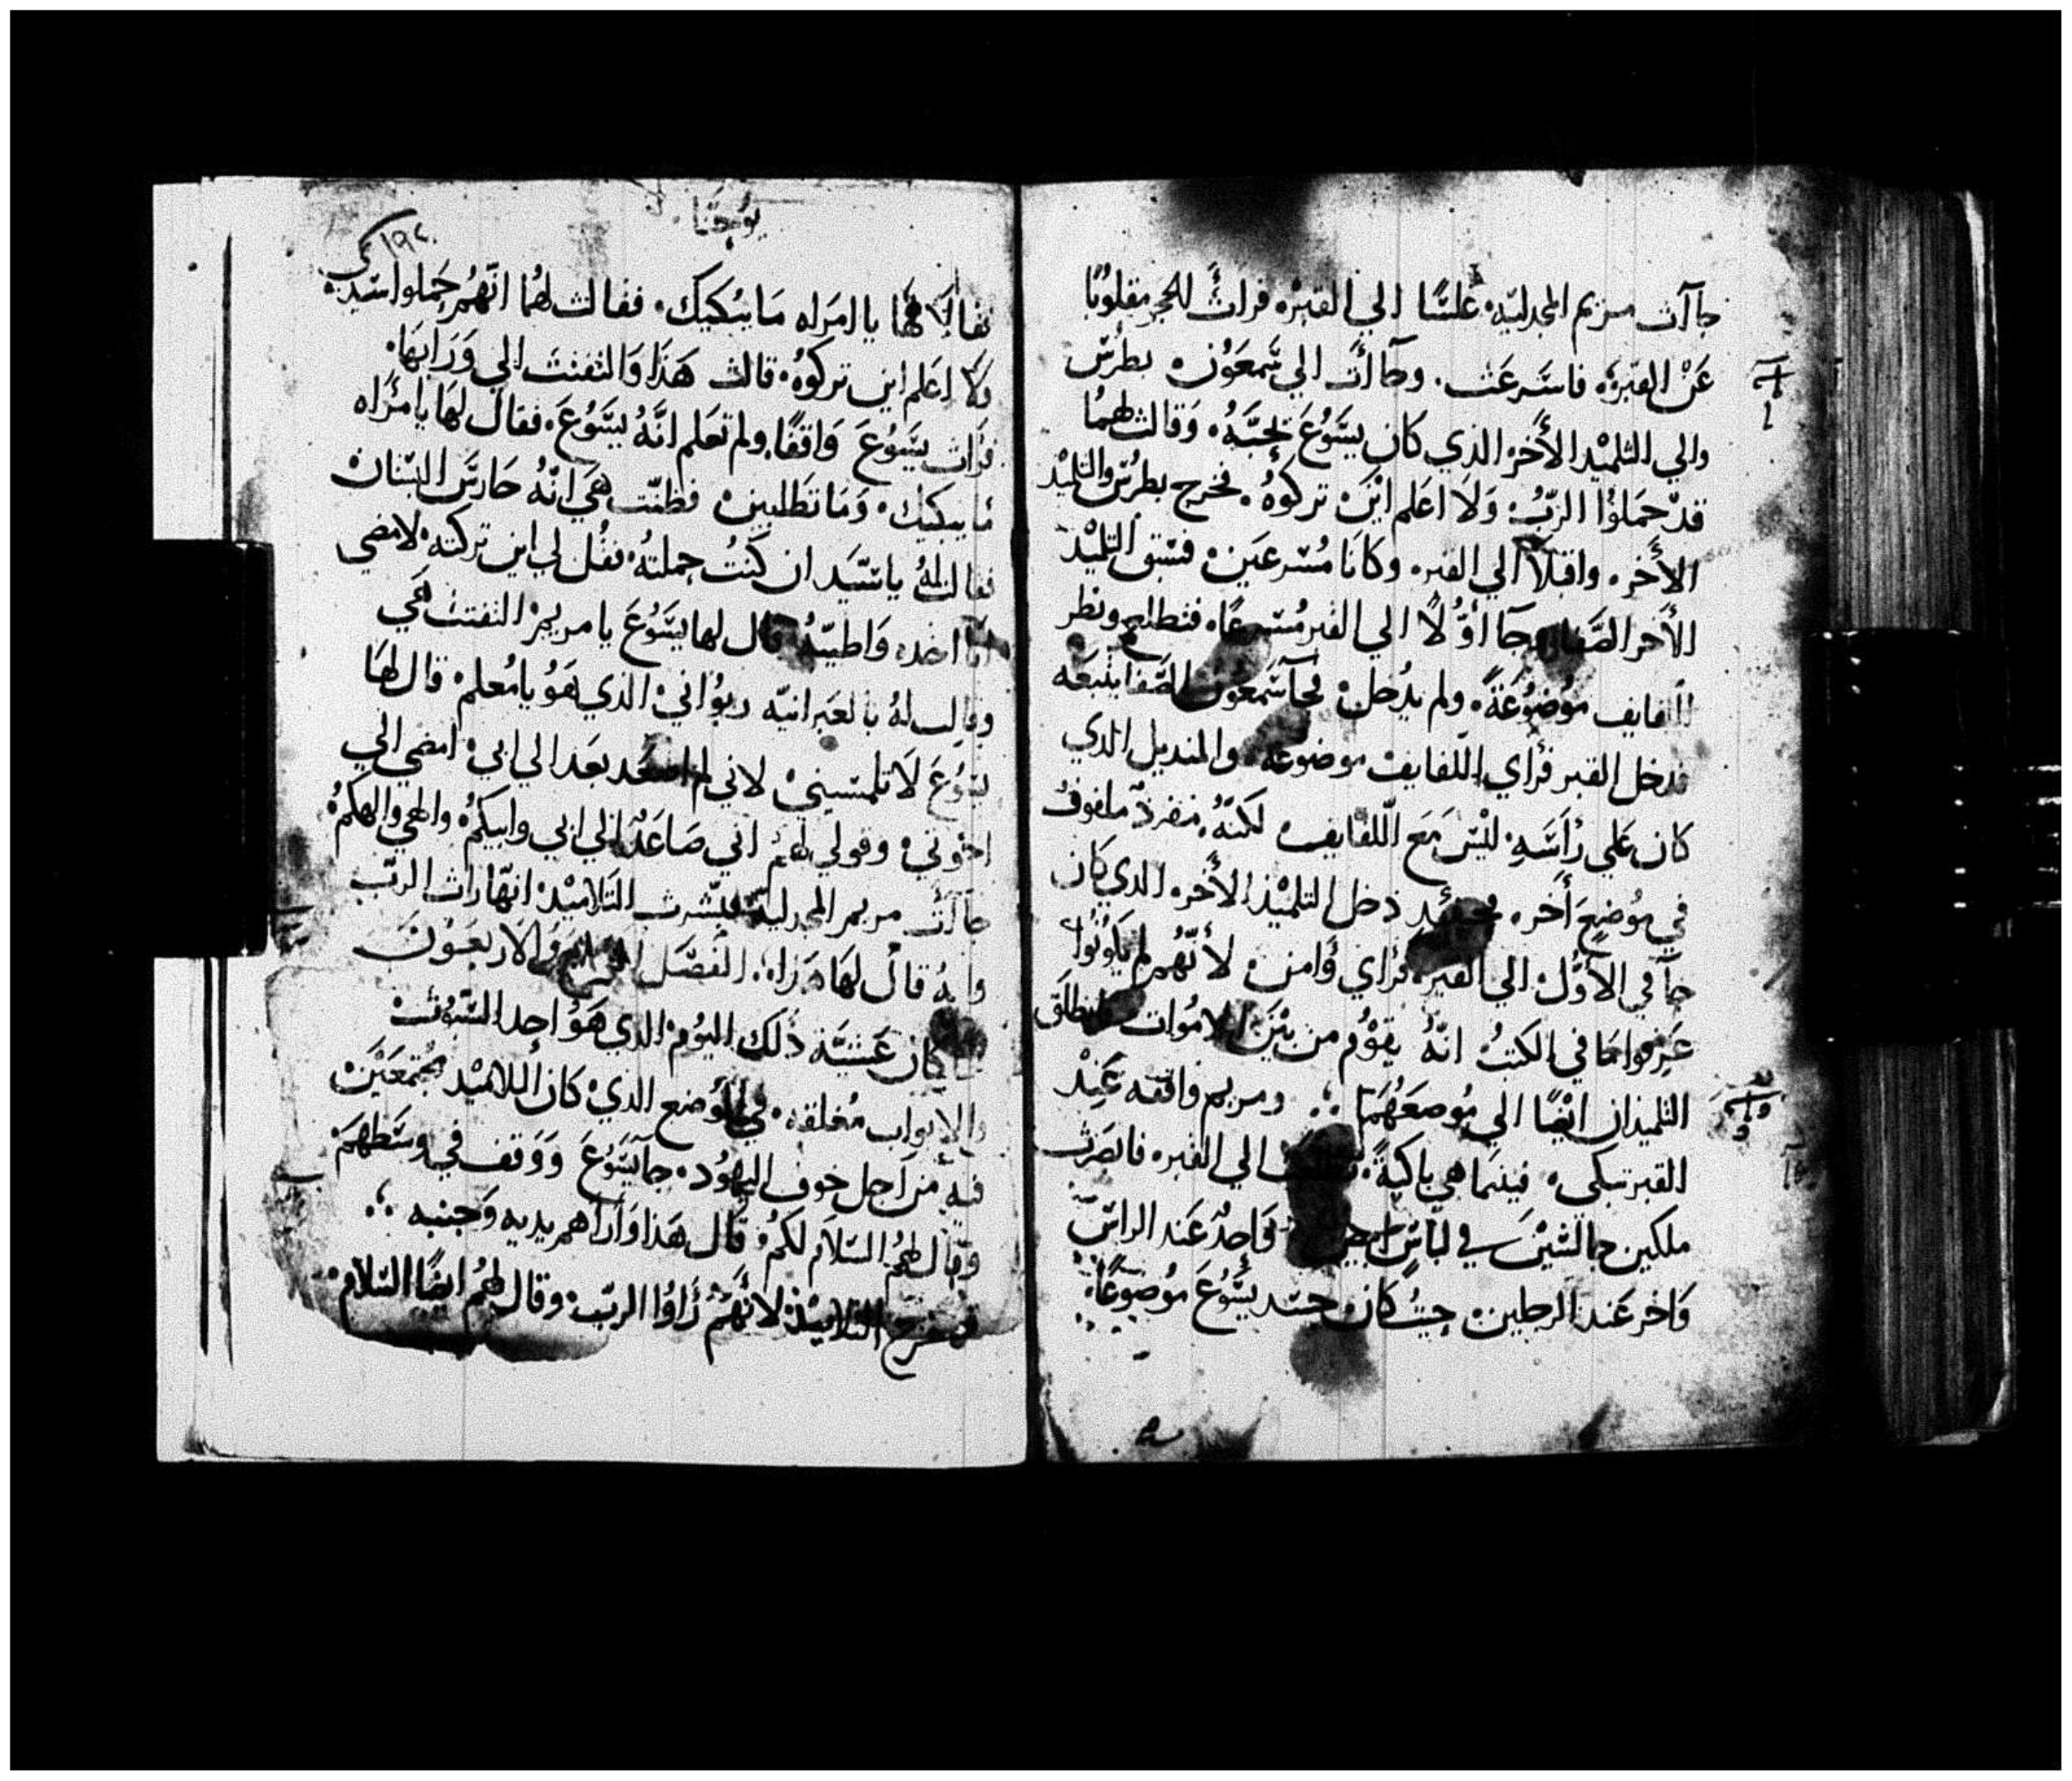 جاآت مريم المجدليّه غلسًا الي القبر. فرات الحجر مقلوبًا
عن القبره فاسرعت. وجاأت الي سمعون بطرس
والي التلميذ الأخر الذي كان يسوع يحبّه. وقالت لهما
قد حملوا الربّ ولا اعلم اين تركوه. فخرج بطرس والتلميذ
الأخر. واقبلا الي القبر. وكانا مسرعين فسبق التلميذ
الأخر الصفا وجا اوّلًا الي القبر مسرعًا. فتطلع ونظر
اللفايف موضوعةً. ولم يدخل فجآ سمعون الصفا يتبعه
فدخل القبر فرأي اللفايف موضوعه. والمنديل الذي
كان علي رأسه ليس مع اللفايف لكنّه. مفردّ ملفوف
في موضع أخر. دخل التلميذ الأخر الذي كان
جآ في الأوّل الي القبر. فرأي وأمن لأنهم لم يكونوا
عرفوا ما في الكتب انّه يقوم من بين الاموات فانطلق
التلميذان ايضًا الي موضعهما ∴ ومريم واقفه عند
القبر تبكي. فبينما هي باكيةً. الي القبر. فابصرت
ملكين جالسين في لباس ابيض واحد عند الراس
واخر عند الرجلين. حيث كان جسد يسوع موضوعًا.
يوحنا
١٩٤
فقالا لها يا امراه ما يبكيك. فقالت لهما انّهم حملوا سيدي
ولا اعلم اين تركوه. قالت هذا والتفتت الي ورايها.
فرأت يسوع واقفًا. ولم تعلم انّه يسوع. فقال لها يا مرأه
ما يبكيك. وما تطلبين فظنّت هي انّه حارس البستان
فقالت له يا سيّد ان كنت حملته. فقل لي اين تركته. لامضي
انا اخذه واطيبه قال لها يسوع يا مريم التفتت هي
وقالت له بالعبرانيّه ربواني الذي هو يا معلم. قال لها
يسوع لا تلمسيني لاني لم اصعد بعد الي ابي امضي الي
اخوتي وقولي لهم اني صاعد الي ابي وابيكم والهي والهكم
جاآت مريم المجدليّه فبشّرت التلاميذ انّها رات الربّ
وانه قال لها هذا. الفصل والاربعون
كان عشيّة ذلك اليوم الذي هو احد السبوت
والابواب مغلقه. في الموضع الذي كان التلاميذ مجتمعين
فيه من اجل خوف اليهود. جا يسوع ووقف في وسطهم
وقال لهم السلام لكم. قال هذا واراهم يديه وجنبه ∴
ففرح التلاميذ لانهم رأوا الربّ. وقال لهم ايضًا السلام